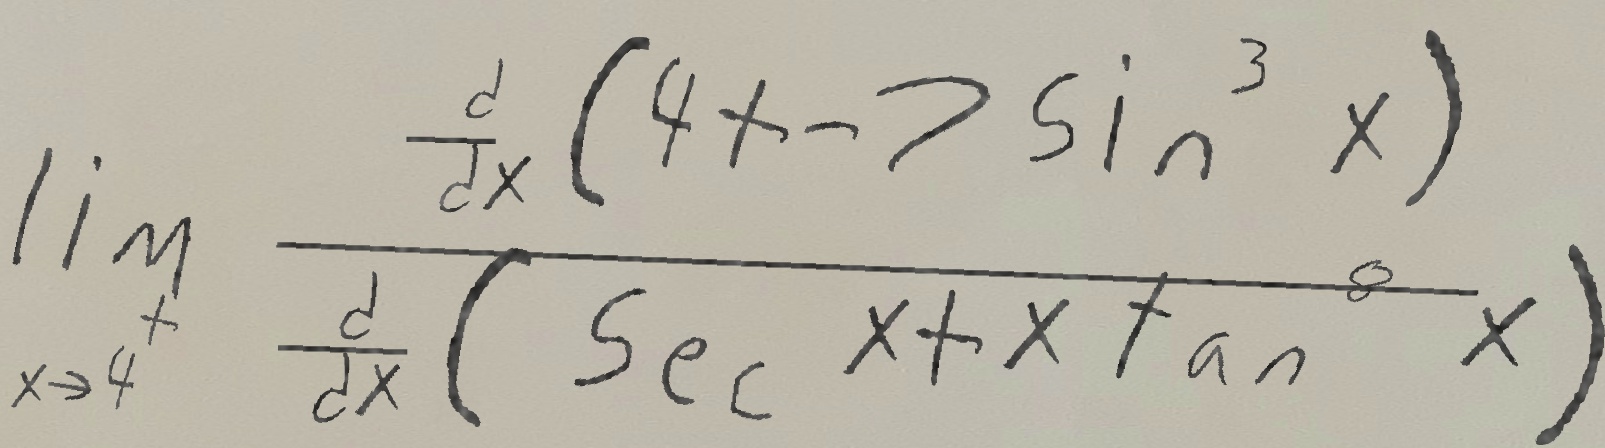 \lim_{x \to 4^+} \frac{\frac{d}{dx}(4 + -7 \sin^3 x)}{\frac{d}{dx}(\sec x + x \tan^8 x)}